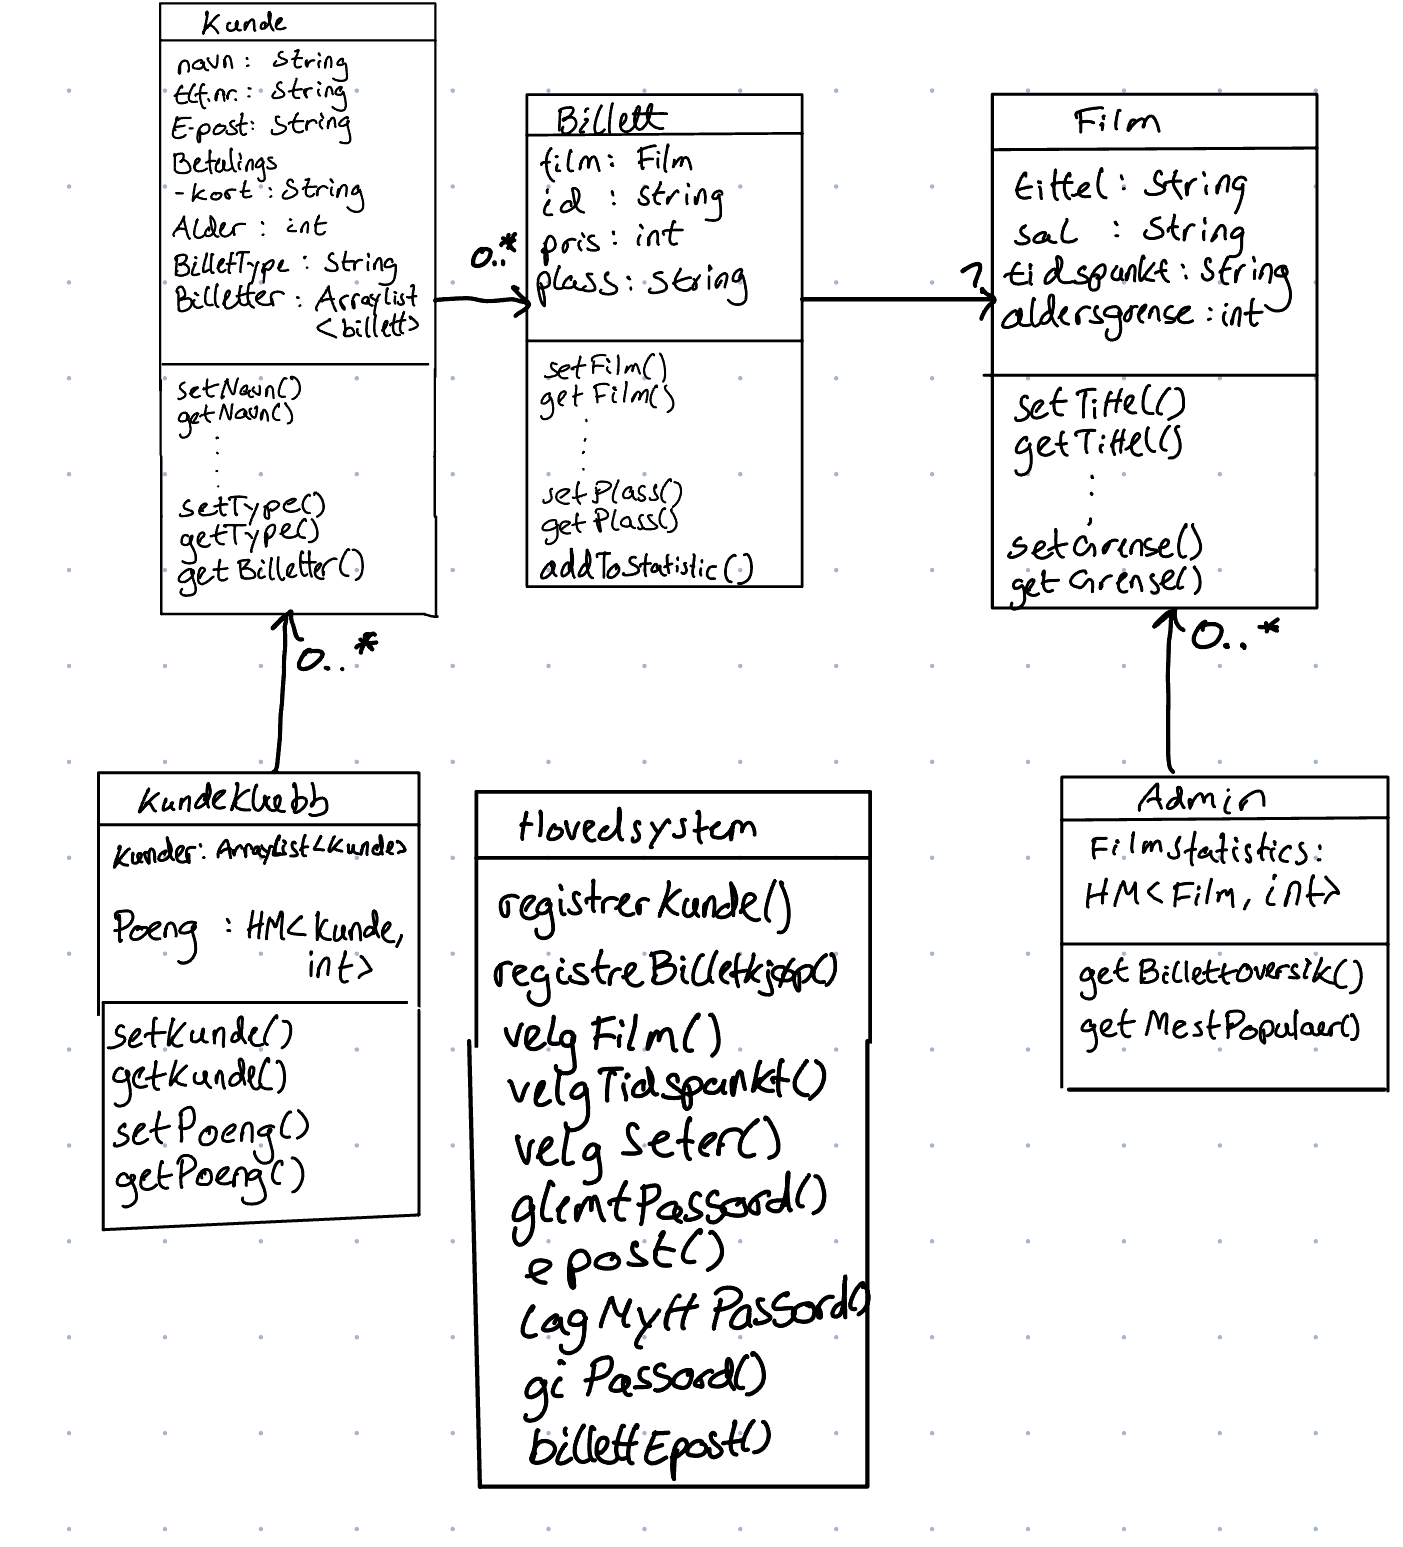 Kunde
navn : String
tlf.nr. : String
E-post: String
Betalings
-kort : String
Alder : int
BillettType : String
Billetter : Arraylist
<billett>
setNavn()
getNavn()
setType()
getType()
getBilletter()
0..*
Billett
film : Film
id : string
pris : int
plass : String
setFilm()
getFilm()
setPlass()
getPlass()
addToStatistic()
1
Film
tittel : String
sal : String
tidspunkt : String
aldersgrense : int
setTittel()
getTittel()
setGrense()
getGrense()
0..*
0..*
Kundeklubb
Kunder: ArrayList<Kunde>
Poeng : HM<Kunde,
int>
setKunde()
getKunde()
setPoeng()
getPoeng()
Hovedsystem
registrerKunde()
registreBillettkjøp()
velgFilm()
velgTidspunkt()
velgSeter()
glemtPassord()
epost()
lagNyttPassord()
giPassord()
billettEpost()
Admin
FilmStatistics:
HM<Film, int>
getBillettoversik()
getMestPopulaer()